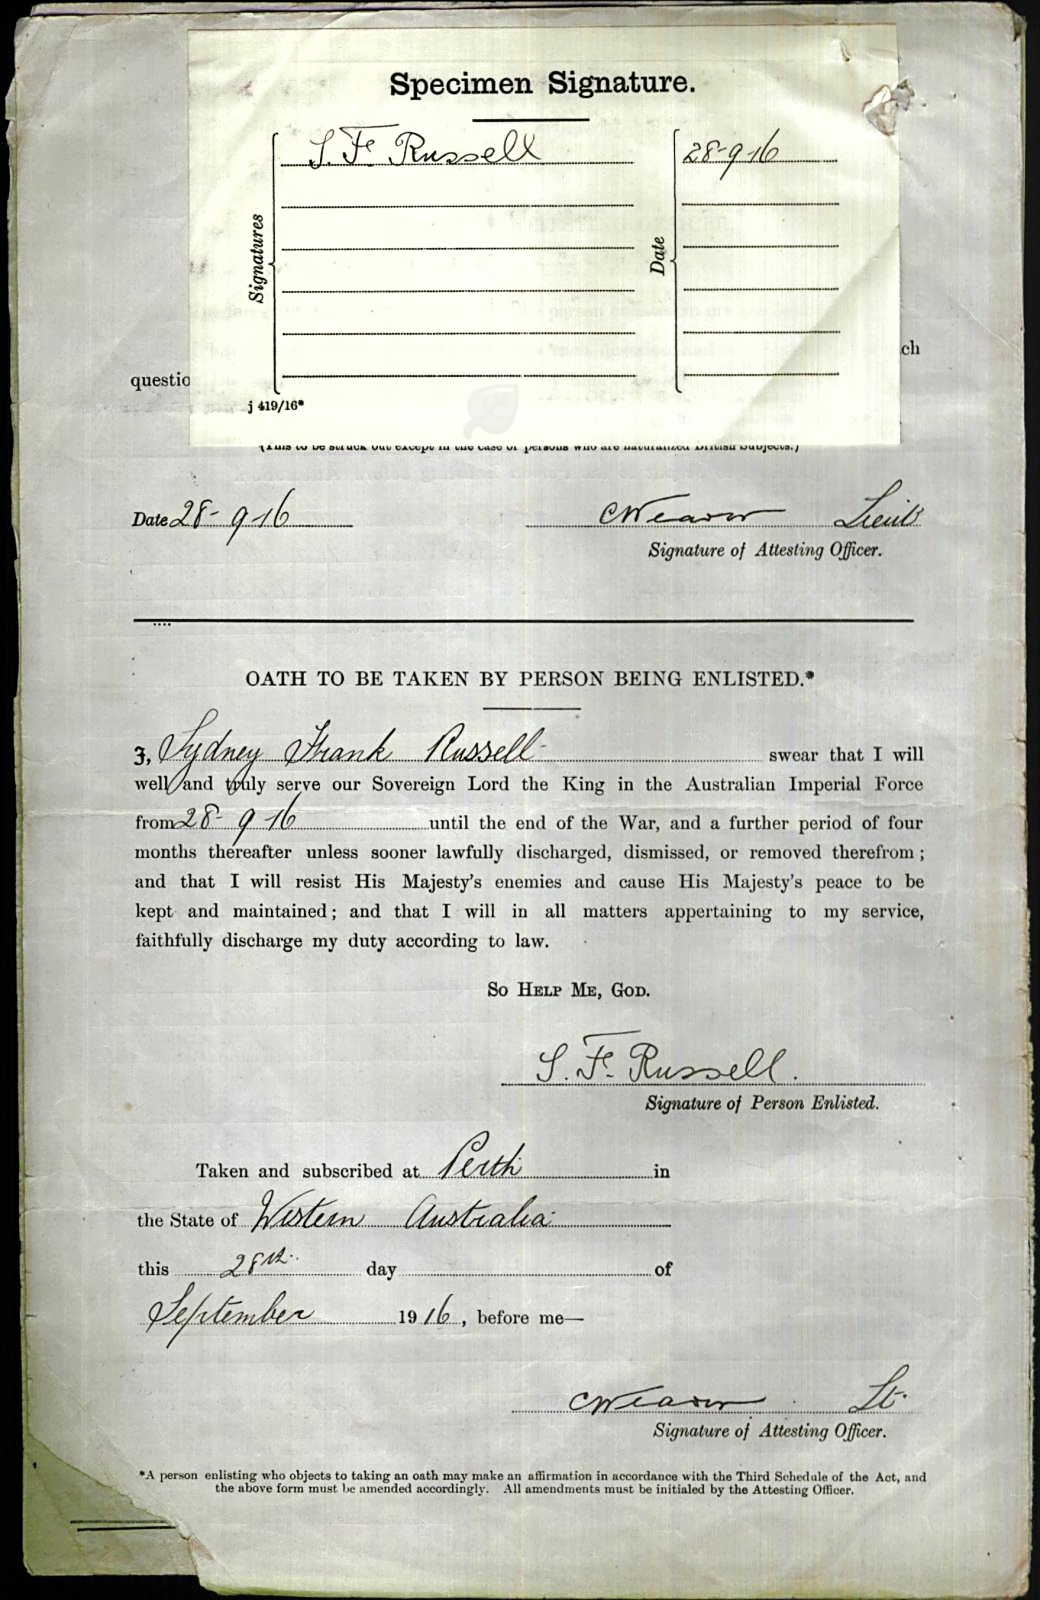 Specimen Signature.
Signatures
S. F. Russell
Date
28-9-16
ch
questio
j 419/16*
(This to be struck out except in the case of persons who are naturalized British Subjects.)
Date 28-9-16 Lieut
Signature of Attesting Officer.
OATH TO BE TAKEN BY PERSON BEING ENLISTED.*
I, Sydney Frank Russell swear that I will
well and truly serve our Sovereign Lord the King in the Australian Imperial Force
from 28-9-16 until the end of the War, and a further period of four
months thereafter unless sooner lawfully discharged, dismissed, or removed therefrom;
and that I will resist His Majesty's enemies and cause His Majesty's peace to be
kept and maintained; and that I will in all matters appertaining to my service,
faithfully discharge my duty according to law.
So Help Me, God.
S. F. Russell.
Signature of Person Enlisted.
Taken and subscribed at Perth in
the State of Western Australia
this 28th day of
September 1916, before me—
Lt.
Signature of Attesting Officer.
*A person enlisting who objects to taking an oath may make an affirmation in accordance with the Third Schedule of the Act, and
the above form must be amended accordingly. All amendments must be initialed by the Attesting Officer.